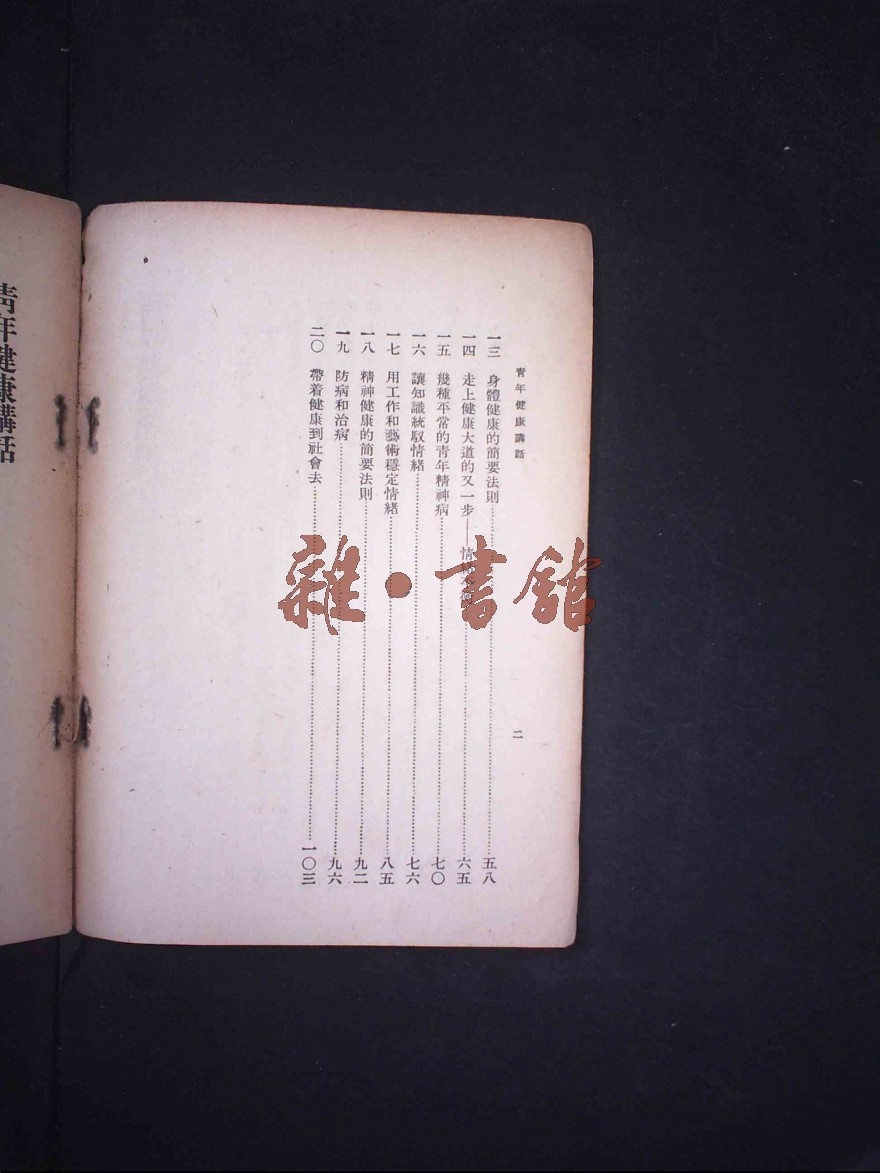 青年健康講話
二
一三 身體健康的簡要法則……五八
一四 走上健康大道的又一步——情……六五
一五 幾種平常的青年精神病……七〇
一六 讓知識統馭情緒……七六
一七 用工作和藝術穩定情緒……八五
一八 精神健康的簡要法則……九二
一九 防病和治病……九六
二〇 帶着健康到社會去……一〇三
青年健康講話
雜·書館